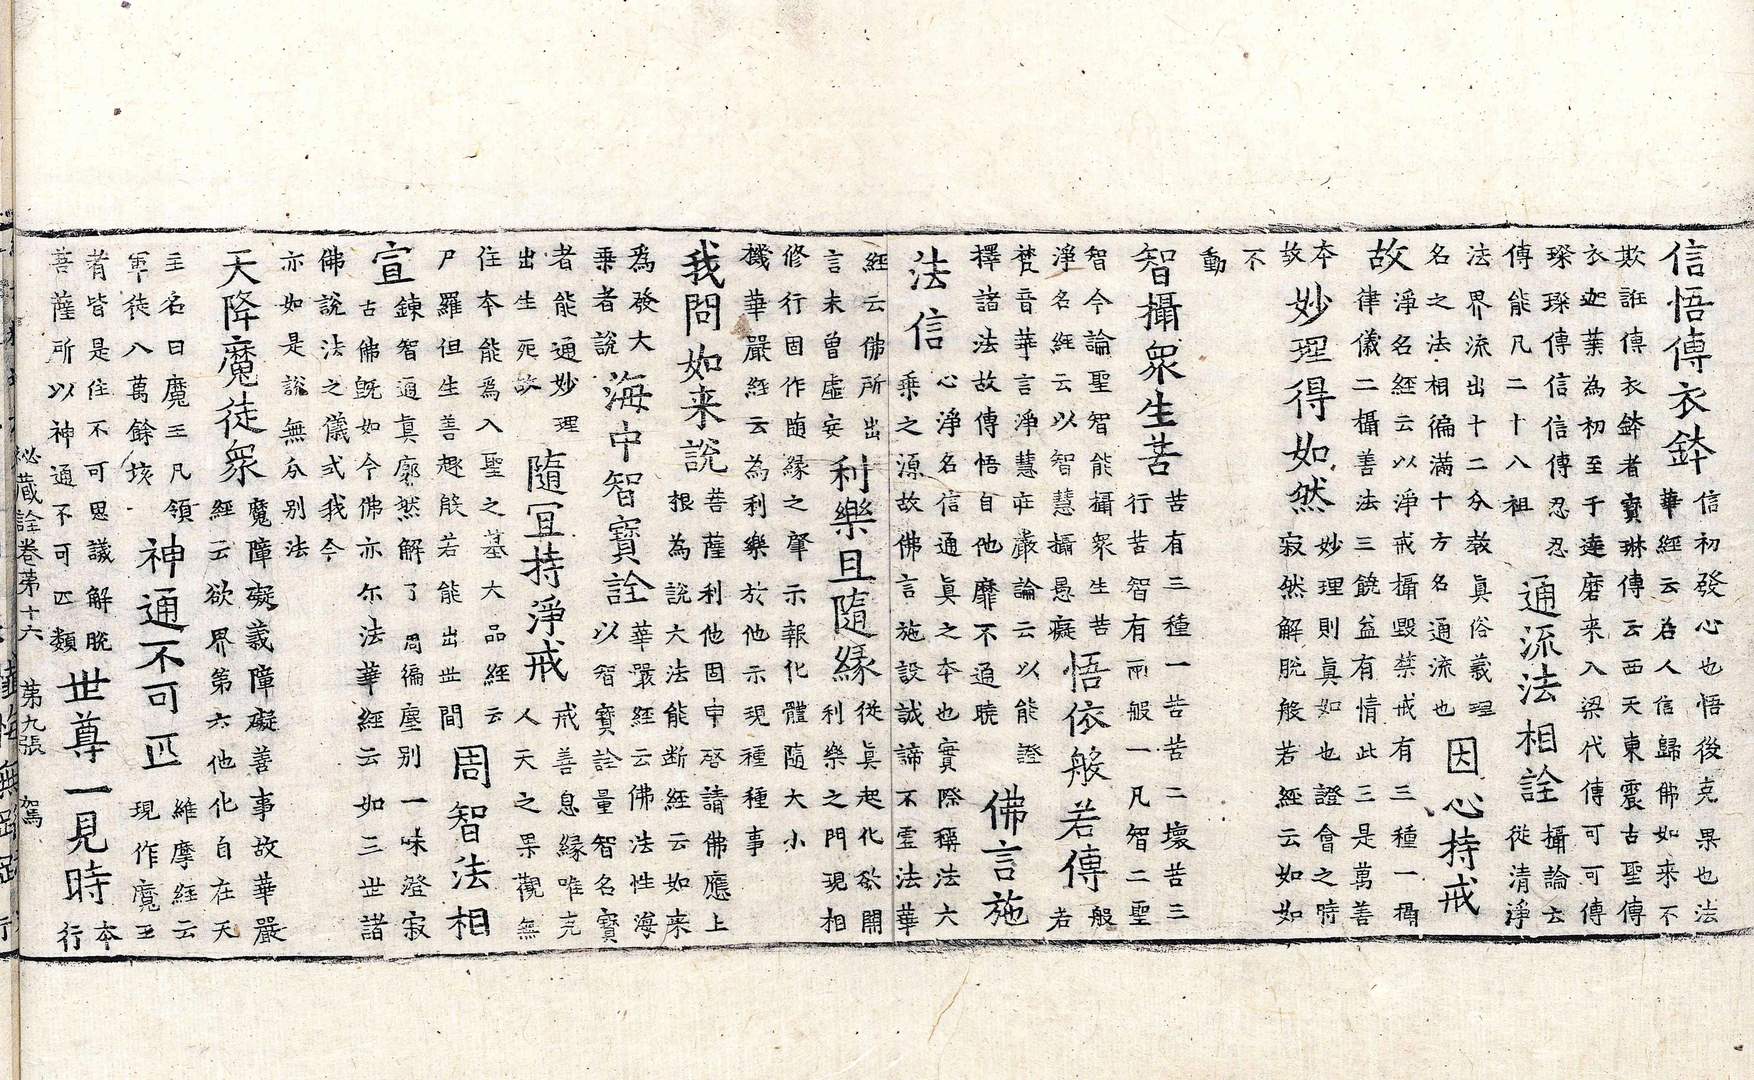 信悟傳衣鉢
信初發心也悟後克果也法
華經云若人信歸佛如來不
欺誑傳衣鉢者寶琳傳云西天東震古聖傳
衣迦葉為初至于達磨来入梁代傳可可傳
璨璨傳信信傳忍忍
傳能凡二十八祖
通流法相詮
攝論云
從清淨
法界流出十二分教真俗義理
名之法相徧滿十方名通流也
因心持戒
故
淨名經云以淨戒攝毀禁戒有三種一攝
律儀二攝善法三饒益有情此三是萬善
本
故
妙理得如然
妙理則真如也證會之時
寂然解脫般若經云如如
不
動
智攝眾生苦
苦有三種一苦苦二壞苦三
行苦智有兩般一凡智二聖
智今論聖智能攝眾生苦
淨名經云以智慧攝愚癡
悟依般若傳
般
若
梵音華言淨慧莊嚴論云以能證
擇諸法故傳悟自他靡不通曉
佛言施
法信
心淨名信通真之本也實際稱法六
乘之源故佛言施設誠諦不虛法華
經云佛所出
言未曾虛妄
利樂且隨緣
從真起化欲開
利樂之門現相
修行因作随緣之肇示報化體隨大小
機華嚴經云為利樂於他示現種種事
我問如来說
菩薩利他固申啓請佛應上
根為說大法能断經云如来
為發大
乗者說
海中智寶詮
華嚴經云佛法性海
以智寶詮量智名寶
者能通妙理
出生死故
隨宜持淨戒
戒善息緣唯克
人天之果觀無
住本能為入聖之基大品經云
尸羅但生善趣般若能出世間
周智法相
宣
鍊智通真廓然解了周徧塵别一味澄寂
古佛既如今佛亦尔法華經云如三世諸
佛說法之儀式我今
亦如是說無分别法
天降魔徒眾
魔障礙義障礙善事故華嚴
經云欲界第六他化自在天
主名曰魔王凡領
軍徒八萬餘垓
神通不可匹
維摩經云
現作魔王
者皆是住不可思議解脫
菩薩所以神通不可匹類
世尊一見時
本
行
祕藏詮卷第十六　第九張　駕